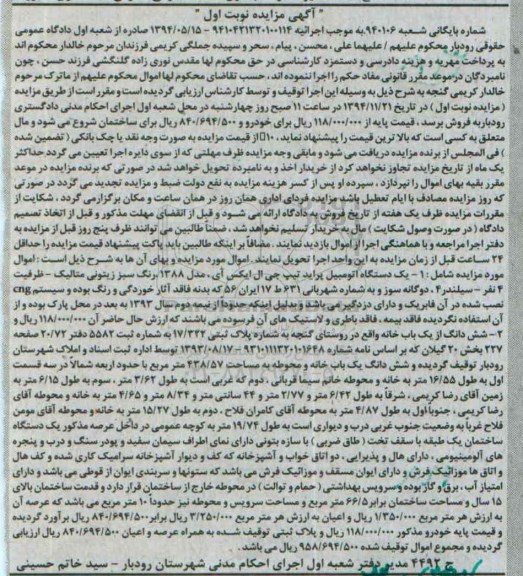 " آگهی مزایده نوبت اول "
شماره بایگانی شعبه ۹۴۰۱۰۶ به موجب اجرائیه ۹۴۱۰۴۲۱۳۲۰۱۰۰۱۱۴ - ۱۳۹۴/۰۵/۱۵ صادره از شعبه اول دادگاه عمومی
حقوقی رودبار محکوم علیهم / علیهما علی ، محسن ، پیام ، سحر و سپیده جملگی کریمی فرزندان مرحوم خالدار محکوم اند
به پرداخت مهریه و هزینه دادرسی و دستمزد کارشناسی در حق محکوم لها مقدس نوری زاده گلنکشی فرزند حسن ، چون
نامبردگان در موعد مقرر قانونی مفاد حکم را اجرا ننموده اند ، حسب تقاضای محکوم لها اموال محکوم علیهم از ماترک مرحوم
خالدار کریمی گنجه به شرح ذیل به وسیله این اجرا توقیف و توسط کارشناس ارزیابی گردیده است و مقرر است از طریق مزایده
( مزایده نوبت اول ) در تاریخ ۱۳۹۴/۱۱/۲۱ در ساعت ۱۱ صبح روز چهارشنبه در محل شعبه اول اجرای احکام مدنی دادگستری
رودبار به فروش برسد . قیمت پایه از ۱۱۸/۰۰۰/۰۰۰ ریال برای خودرو و ۸۴۰/۶۹۴/۵۰۰ ریال برای ساختمان شروع می شود و مال
متعلق به کسی است که بالاترین قیمت را پیشنهاد نماید ، ۱۰٪ از قیمت مزایده به صورت وجه نقد یا چک بانکی ( تضمین شده
) فی المجلس از برنده مزایده دریافت می شود و مابقی وجه مزایده ظرف مهلتی که از سوی دایره اجرا تعیین می گردد حداکثر
یک ماه از تاریخ مزایده تجاوز نخواهد کرد از خریدار اخذ و به نامبرده تحویل خواهد شد در صورتی که برنده مزایده در موعد
مقرر بقیه بهای اموال را نپردازد ، سپرده او پس از کسر هزینه مزایده به نفع دولت ضبط و مزایده تجدید می گردد در صورتی
که روز مزایده مصادف با ایام تعطیل باشد مزایده فردای اداری همان روز در همان ساعت و مکان برگزار می گردد ، شکایت از
مقررات مزایده ظرف یک هفته از تاریخ فروش به دادگاه ارائه می شود و قبل از انقضای مهلت مذکور و قبل از اتخاذ تصمیم
دادگاه ( در صورت وصول شکایت ) مال به خریدار تسلیم نخواهد شد . ضمنا طالبین می توانند ظرف پنج روز قبل از مزایده به
دفتر اجرا مراجعه و با هماهنگی اجرا از اموال بازدید نمایند . مضافا بر اینکه طالبین باید پاکت پیشنهاد قیمت مزایده را حداقل
۲۴ ساعت قبل از زمان مزایده به این واحد اجرا تحویل نمایند . اموال مورد مزایده و بهای آن ها به شرح ذیل است : اموال
مورد مزایده شامل : ۱ - یک دستگاه اتومبیل پراید تیپ جی ال ایکس آی ، مدل ۱۳۸۸ رنگ سبز زیتونی متالیک - ظرفیت
۴ نفر - سیلندر ۴ ، دوگانه سوز و به شماره شهربانی ۶۳۱ ط ۱۷ ایران ۵۶ که بدنه فاقد آثار خوردگی و رنگ بوده و سیستم cng
نصب شده در آن فابریک و دارای دزدگیر می باشد و بدلیل اینکه حدودا از نیمه دوم سال ۱۳۹۳ به بعد در محل پارک بوده و از
آن استفاده نگردیده فاقد بیمه ، فاقد باطری و لاستیک های آن فرسوده می باشند که ارزش حال حاضر آن ۱۱۸/۰۰۰/۰۰۰ ریال و
۲ - شش دانگ از یک باب خانه واقع در روستای گنجه به شماره پلاک ثبتی ۱۷/۳۲۲ به شماره ثبت ۵۵۸۲ دفتر ۲۰/۷۲ صفحه
۲۲۷ بخش ۲۰ گیلان که بر اساس نامه شماره ۹۳۱۰۱۱۱۳۲۰۱۰۱۶۴۸ - ۱۳۹۳/۰۸/۱۷ توسط اداره ثبت اسناد و املاک شهرستان
رودبار توقیف گردیده و شش دانگ یک باب خانه و محوطه به مساحت ۴۳۸/۵۷ متر مربع با حدود اربعه شمالاً در سه قسمت
اول به طول ۱۶/۵۵ متر به خانه و محوطه خانم سیما قربانی ، دوم که غربی است به طول ۳/۶۲ متر ، سوم به طول ۶/۱۵ متر به
زمین آقای رضا کریمی ، شرقا به طول ۶/۴۲ متر و ۲/۷۷ متر و ۴۴ سانتی متر و ۸/۳۴ متر و ۴/۶۵ متر به خانه و محوطه آقای
رضا کریمی ، جنوبا اول به طول ۴/۸۷ متر به محوطه آقای کامران فلاح ، دوم به طول ۱۵/۲۷ متر به خانه و محوطه آقای مومن
فلاح غربا به وضعیت جنوب غربی درب و دیواری است به طول ۱۹/۷۴ متر به کوچه عمومی در داخل عرصه مذکور یک دستگاه
ساختمان یک طبقه با سقف تخت ( طاق ضربی ) با سازه بتونی دارای نمای اطراف سیمان سفید و پودر سنگ و درب و پنجره
های آلومینیومی ، دارای هال و پذیرایی ، دو اتاق خواب و آشپزخانه که کف و دیوار آشپزخانه سرامیک کاری شده و کف هال
و اتاق ها موزائیک فرش و دارای ایوان مسقف و موزائیک فرش می باشد که ستونها و سربندی ایوان از قوطی می باشد و دارای
امتیاز آب ، برق و گاز بوده و سرویس بهداشتی ( حمام و توالت ) در محوطه خارج از ساختمان قرار دارد و قدمت ساختمان بالای
۱۵ سال و مساحت ساختمان برابر ۶۶/۵ متر مربع و مساحت سرویس و محوطه نیز حدودا ۱۰ متر مربع می باشد که عرصه آن
به ارزش هر متر مربع ۱/۳۵۰/۰۰۰ ریال و اعیان به ارزش هر متر مربع ۳/۲۵۰/۰۰۰ ریال برابر ۸۴۰/۶۹۴/۵۰۰ ریال برآورد گردیده
و قیمت پایه خودرو مذکور ۱۱۸/۰۰۰/۰۰۰ ریال و پلاک ثبتی توقیف شده به همراه عرصه و اعیان ۸۴۰/۶۹۴/۵۰۰ ریال ارزیابی
گردیده و مجموع اموال توقیف شده ۹۵۸/۶۹۴/۵۰۰ ریال می باشد .
ج ۴۴۹۲ مدیر دفتر شعبه اول اجرای احکام مدنی شهرستان رودبار - سید خاتم حسینی